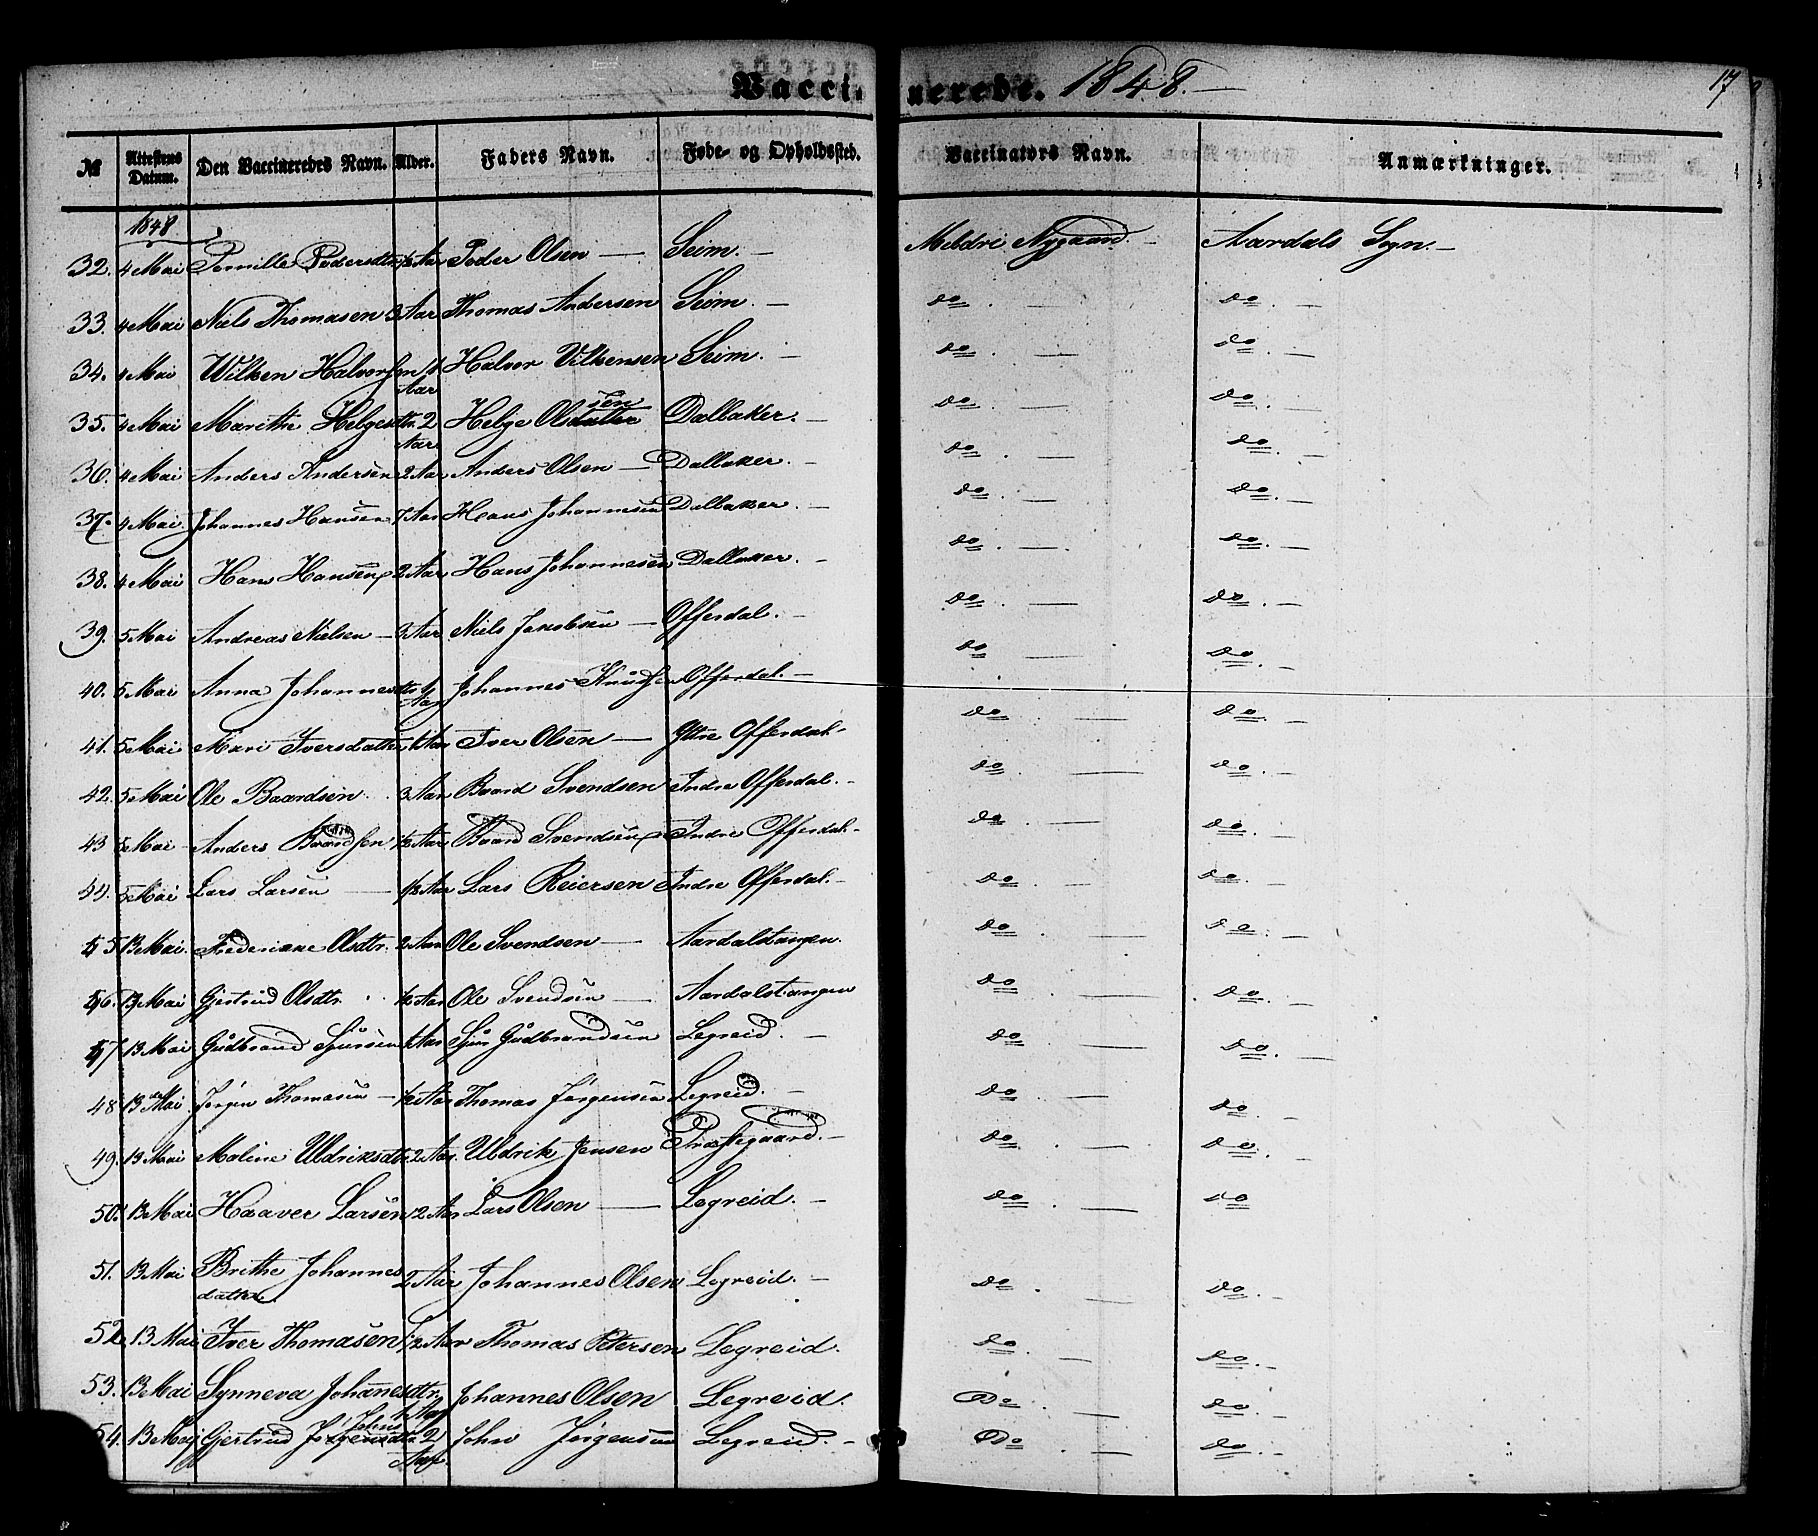 Vaccinerede. 1848.
17
№ Attestens Datum. Den Vaccineredes Navn. Alder. Faders Navn. Føde- og Opholdssted. Vaccinators Navn. Anmærkninger.
1848
32. 4 Mai Pernille Pedersdtr ½ Aar Peder Olsen — Seim. — Meldri Nygaard. — Aardals Sogn. —
33. 4 Mai Niels Thomasen 3 Aar Thomas Andersen Seim. — do. — do. —
34. 4 Mai Wilken Halvorsen 4 Aar Halvor Vilkensen Seim. — do. — do. —
35. 4 Mai Marithe Helgesdtr. 2 Aar Helge Olsdatter sen Dallaker. — do. — do. —
36. 4 Mai Anders Andersen 2 Aar Anders Olsen — Dallaker. — do. — do. —
37. 4 Mai. Johannes Hansen 7 Aar Hans Johannesen Dallaker. — do. — do. —
38. 4 Mai Hans Hansen 2 Aar Hans Johannesen Dallaker. — do. — do. —
39. 5 Mai Andreas Nielsen — 3 Aar Niels Jakobsen — Offerdal. — do. — do. —
40. 5 Mai Anna Johannesdtr Aar Johannes Knudsen Offerdal. — do do. —
41. 5 Mai Mari Iversdatter 1 Aar Iver Olsen — Yttre Offerdal. do. — do. —
42. 5 Mai Ole Baardsen. 3 Aar Baard Svendsen Indre Offerdal. — do. — do. —
43 5 Mai Anders Baardsen ½ Aar Baard Svendsen Indre Offerdal. — do. — do. —
44. 5 Mai Lars Larsen — ½ Aar Lars Reiersen Indre Offerdal. — do. — do. —
45 13 Mai. Frederikke Olsdtr. 2 Aar Ole Svendsen — Aardalstangen. do. — do. —
46. 13 Mai Gjertrud Olsdtr. ½ Aar Ole Svendsen — Aardalstangen do. — do. —
47 13 Mai Gudbrand Sjursen 1 Aar Sjur Gudbrandsen Legreid. — do. — do. —
48 13de Mai Jørgen Thomasen — ½ Aar Thomas Jørgensen Legreid. — do. — do. —
49. 13 Mai Maline Uldriksdtr. 2 Aar. Uldrik Jensen Præstegaard. — do. — do. —
50. 13 Mai Haaver Larsen 2 Aar Lars Olsen — Legreid. — do. — do
51. 13 Mai Brithe Johannes datter 2 Aar Johannes Olsen Legreid. — do. — do. —
52. 13 Mai Iver Thomasen ½ Aar Thomas Petersen Legreid. do. — do. —
53. 13 Mai Synneva Johanesdtr. Aar Johannes Olsen Legreid. Do. — do. —
54. 13 Mai Gjertrud Jørgensdtr Johns 2 Aar. John Jørgensen Legreid. — Do. — do. —